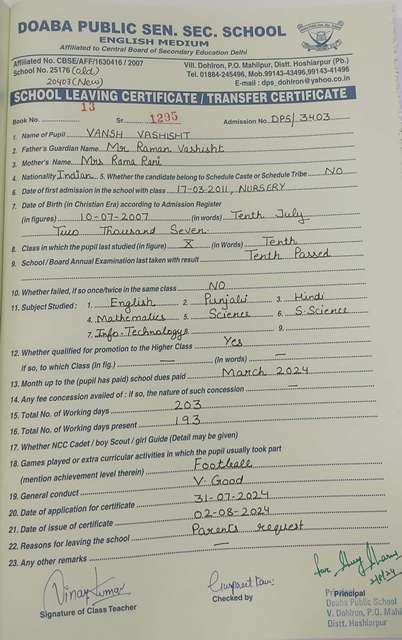 DOABA PUBLIC SEN. SEC. SCHOOL
ENGLISH MEDIUM
Affiliated to Central Board of Secondary Education Delhi
Affiliated No. CBSE/AFF/1630416 / 2007
Vill. Dohlron, P.O. Mahilpur, Distt. Hoshiarpur (Pb.)
School No. 25176 (Old)
Tel. 01884-245496, Mob.99143-43496,99143-41496
20403 (New)
E-mail : dps_dohlron@yahoo.co.in
SCHOOL LEAVING CERTIFICATE / TRANSFER CERTIFICATE
Book No. 13 Sr. 1295 Admission No. DPS/3403
1. Name of Pupil VANSH VASHISHT
2. Father's Guardian Name Mr Raman Vashisht
3. Mother's Name Mrs Rama Rani
4. Nationality Indian 5. Whether the candidate belong to Schedule Caste or Schedule Tribe NO
6. Date of first admission in the school with class 17-03-2011, NURSERY
7. Date of Birth (in Christian Era) according to Admission Register
(in figures) 10-07-2007 (in words) Tenth July
Two Thousand Seven.
8. Class in which the pupil last studied (in figure) X (in Words) Tenth
9. School / Board Annual Examination last taken with result Tenth Passed
10. Whether failed, if so once/twice in the same class NO
11. Subject Studied : 1. English 2. Punjabi 3. Hindi
4. Mathematics 5. Science 6. S. Science
7. Info. Technology 8. 9.
12. Whether qualified for promotion to the Higher Class Yes
if so, to which Class (in fig.) — (in words) —
13. Month up to the (pupil has paid) school dues paid March 2024
14. Any fee concession availed of : if so, the nature of such concession —
15. Total No. of Working days 203
16. Total No. of Working days present 193
17. Whether NCC Cadet / boy Scout / girl Guide (Detail may be given)
18. Games played or extra curricular activities in which the pupil usually took part
(mention achievement level therein) Football
19. General conduct V. Good
20. Date of application for certificate 31-07-2024
21. Date of issue of certificate 02-08-2024
22. Reasons for leaving the school Parents request
23. Any other remarks —
Vinay Kumar
Signature of Class Teacher
Checked by
Principal
Doaba Public School
V. Dohlron, P.O. Mahil
Distt. Hoshiarpur